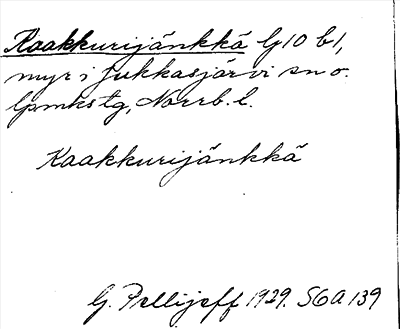 Kaakkurijänkkä lg 10 b 1,
myr i Jukkasjärvi sn o.
lpmkstg, Norrb. l.
Kaakkurijänkkä
G. Pellijeff 1929. S6A 139